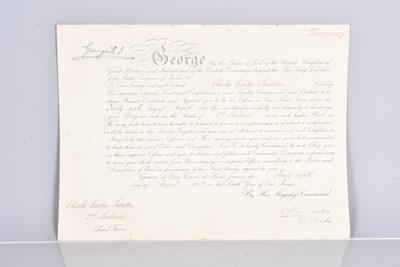 Temporary
George R.I.
George by the Grace of God, of the United Kingdom of
Great Britain and Ireland and of the British Dominions beyond the Seas King, Defender
of the Faith, Emperor of India &c.
To Our Trusty and well beloved Charles Greeting
We, reposing especial Trust and Confidence in your Loyalty, Courage, and good Conduct, do by
these Presents Constitute and Appoint you to be an Officer in Our Land Forces from the
day of August You are therefore carefully and diligently to discharge
your Duty as such in the Rank of 2nd Lieutenant or in such higher Rank as
We may from time to time hereafter be pleased to promote or appoint you to, of which a notification
will be made in the London Gazette, and you are at all times to exercise and well discipline in
Arms both the inferior Officers and Men serving under you and use your best endeavours
to keep them in good Order and Discipline. And We do hereby Command them to Obey you
as their superior Officer, and you to observe and follow such Orders and Directions as from
time to time you shall receive from Us, or any your superior Officer, according to the Rules and
Discipline of War, in pursuance of the Trust hereby reposed in you.
Given at Our Court, at Saint James's, the
day of August in the Sixth Year of Our Reign
By His Majesty's Command
Charles
2nd Lieutenant
Land Forces